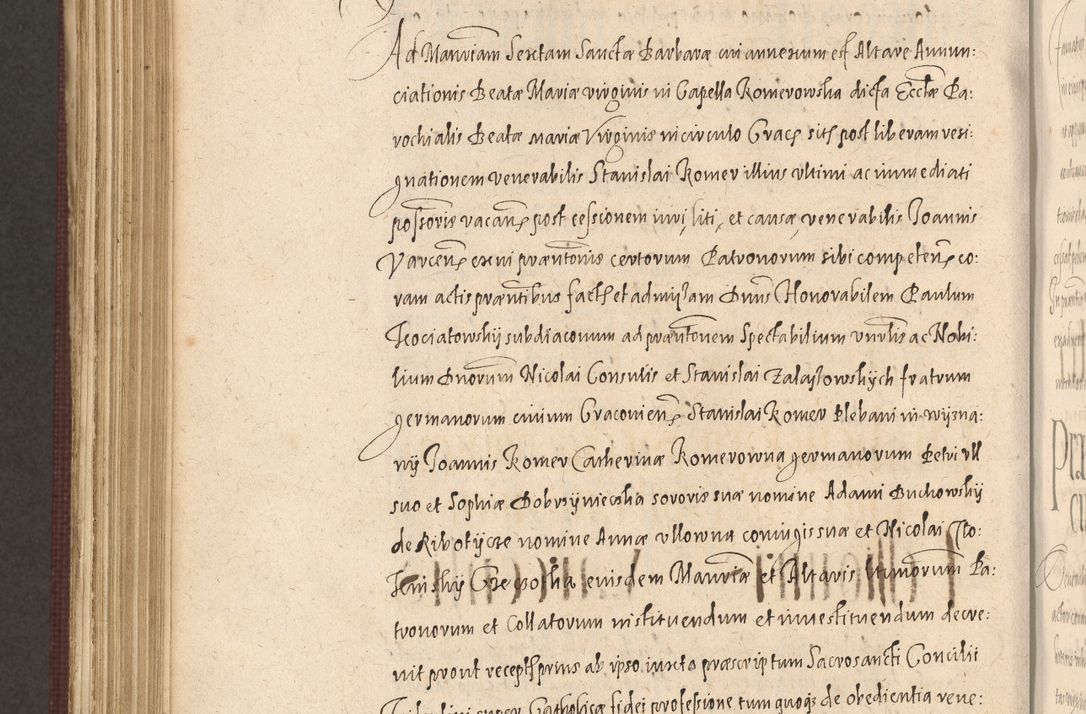 Ad Mansioriam Sextam Sanctæ Barbaræ cui annexum est Altare Annun:
ciationis Beatæ Mariæ virginis in Capella Romerowska dicta Eccłæ Pa:
rochialis Beatæ mariæ Virginis in circulo Crac. sitæ post liberam resi:
gnationem venerabilis Stanislai Romer illius vltimi ac immediati
poss̄oris vacan̄ post cessionem iuri, liti, et causæ venerabilis Joannis
Varcen̄ ex vi præn̄tonis certorum Patronorum sibi competen̄ co:
ram actis præn̄tibus fact et admissam Dnūs Honorabilem Paulum
subdiaconum ad præn̄tonem Spectabilium vnrlis ac Nobi:
lium Dnorum Nicolai Consulis et Stanislai Zalaszowskÿch fratrum
germanorum ciuium Cracouien̄ Stanislai Romer Plebani in
Joannis Romer Catherinæ Romerowna germanorum Petri vll
suo et Sophiæ sororis suæ nomine Adami Buchowskÿ
de nomine Annæ vllowna coniugis suæ et Nicolai
eiusdem et Altaris Pa:
tronorum et Collatorum instituendum et inuestituendum decre:
uit prout recept prius ab ipso iuxta præscriptum Sacrosancti Concilii
super Catholicæ fidei professione tum quoqz de obedientia reue: